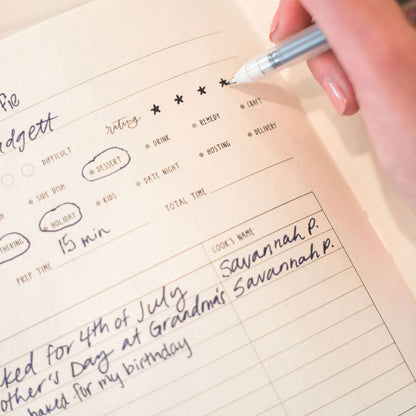 Pie
dgett
rating
DIFFICULT
DESSERT
DRINK
REMEDY
CRAFT
SIDE DISH
DATE NIGHT
HOSTING
DELIVERY
HOLIDAY
KIDS
THERING
TOTAL TIME
PREP TIME 15 min
COOK'S NAME
Savannah P.
Savannah P.
ked for 4th of July
other's Day at Grandma's
baked for my birthday